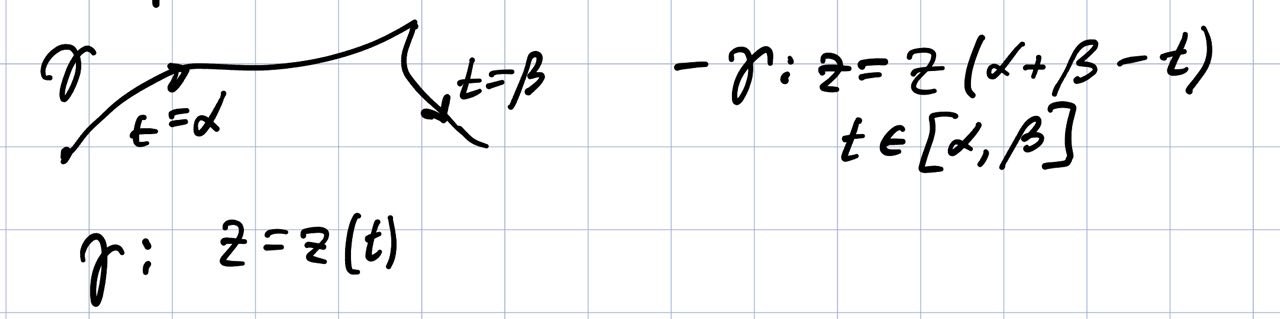 γ
t=α
t=β
-γ: z=z(α+β-t)
t∈[α,β]
γ: z=z(t)